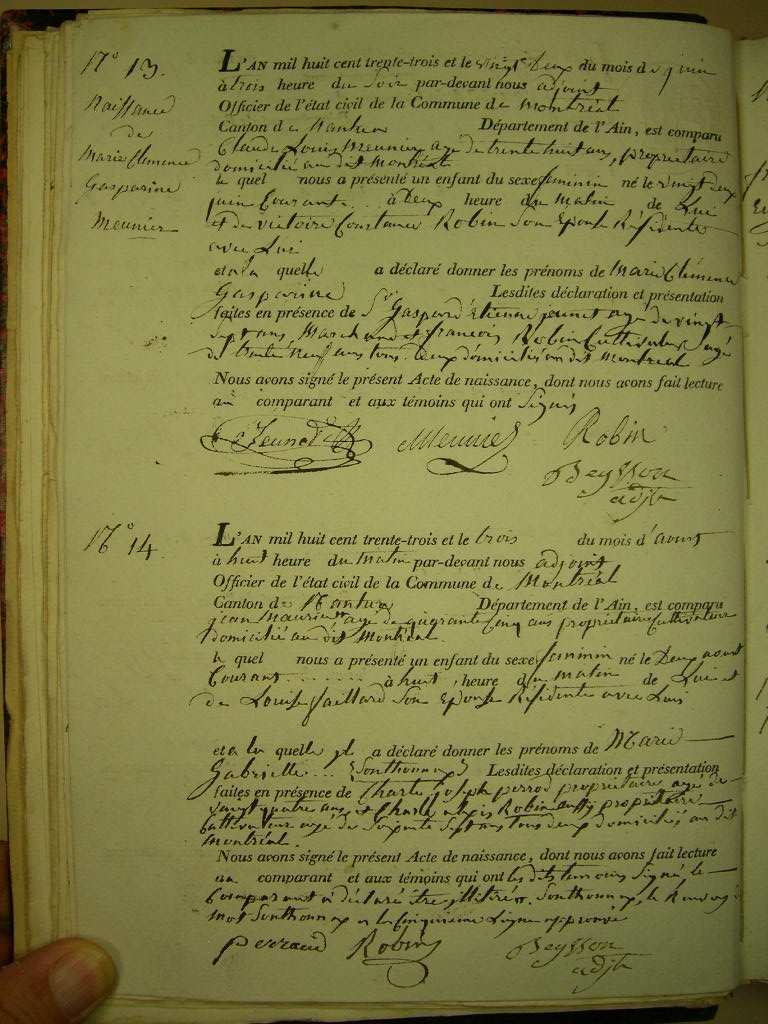 N° 13.
Naissance
de
Marie Clemence
Gasparine
Meunier
L'AN mil huit cent trente-trois et le vingt Deux du mois de juin
à trois heure du Soir par-devant nous adjoint
Officier de l'état civil de la Commune de Montréal
Canton de Nantua Département de l'Ain, est comparu
Claude Louis Meunier age de trente huit ans, propriétaire
domicilié au dit Montréal
le quel nous a présenté un enfant du sexe feminin né le vingt deux
juin Courant .. à Deux heure du Matin de Lui
et de victoire Constance Robin Son Epouse Résidente
avec Lui
et a la quelle a déclaré donner les prénoms de Marie Clémence
Gasparine Lesdites déclaration et présentation
faites en présence de Sr Gaspard Etienne agé de vingt
sept ans, Marchand et francois Robin Cultivateur agé
de trente neuf ans tous Deux domiciliés au dit Montréal
Nous avons signé le présent Acte de naissance, dont nous avons fait lecture
au comparant et aux témoins qui ont Signés
Meunier Robin
Beysson
adjt
N° 14.
L'AN mil huit cent trente-trois et le trois du mois d'aoust
à huit heure du Matin par-devant nous adjoint
Officier de l'état civil de la Commune de Montréal
Canton de Nantua Département de l'Ain, est comparu
jean agé de quarante Cinq ans propriétaire Cultivateur
domicilié au dit Montréal.
le quel nous a présenté un enfant du sexe feminin né le Deux aoust
Courant ........ à huit heure du matin de Lui et
de Louise Vaillard Son Epouse Résidente avec Lui
et a la quelle il a déclaré donner les prénoms de Marie
Gabrielle ... Sonthonnax Lesdites déclaration et présentation
faites en présence de Charle joseph perrod propriétaire agé de
vingt quatre ans et Charle alexis Robin aussi propriétaire
Cultivateur agé de Soixante Sept ans tous deux domiciliés au dit
Montréal.
Nous avons signé le présent Acte de naissance, dont nous avons fait lecture
au comparant et aux témoins qui ont les dits temoins Signé le
Comparant a déclaré être illitéré. Sonthonnax, le Renvoy
mot Sonthonnax a la Cinquieme Ligne approuvé
Robin
Beysson
adjt